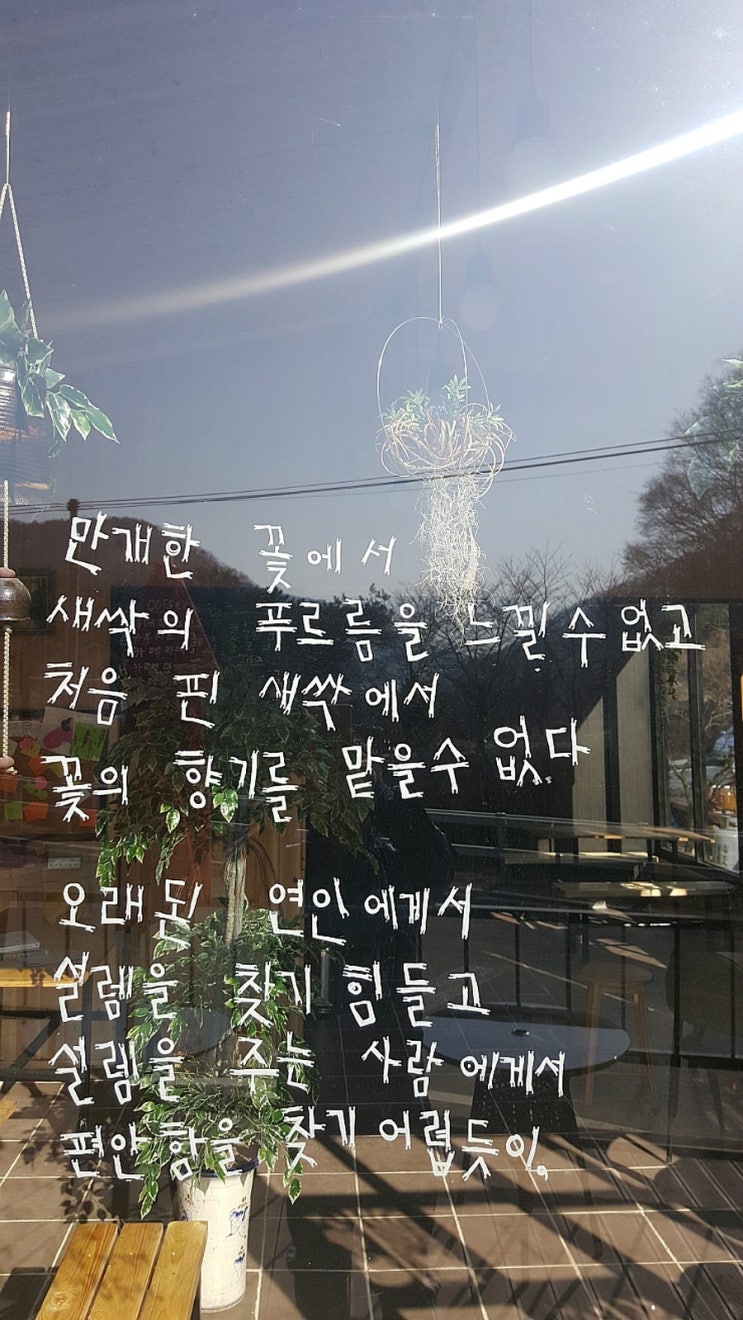 만개한 꽃에서
새싹의 푸르름을 느낄수없고
처음 핀 새싹에서
꽃의 향기를 맡을수 없다
오래된 연인에게서
설렘을 찾기 힘들고
설렘을 주는 사람에게서
편안함을 찾기 어렵듯이.